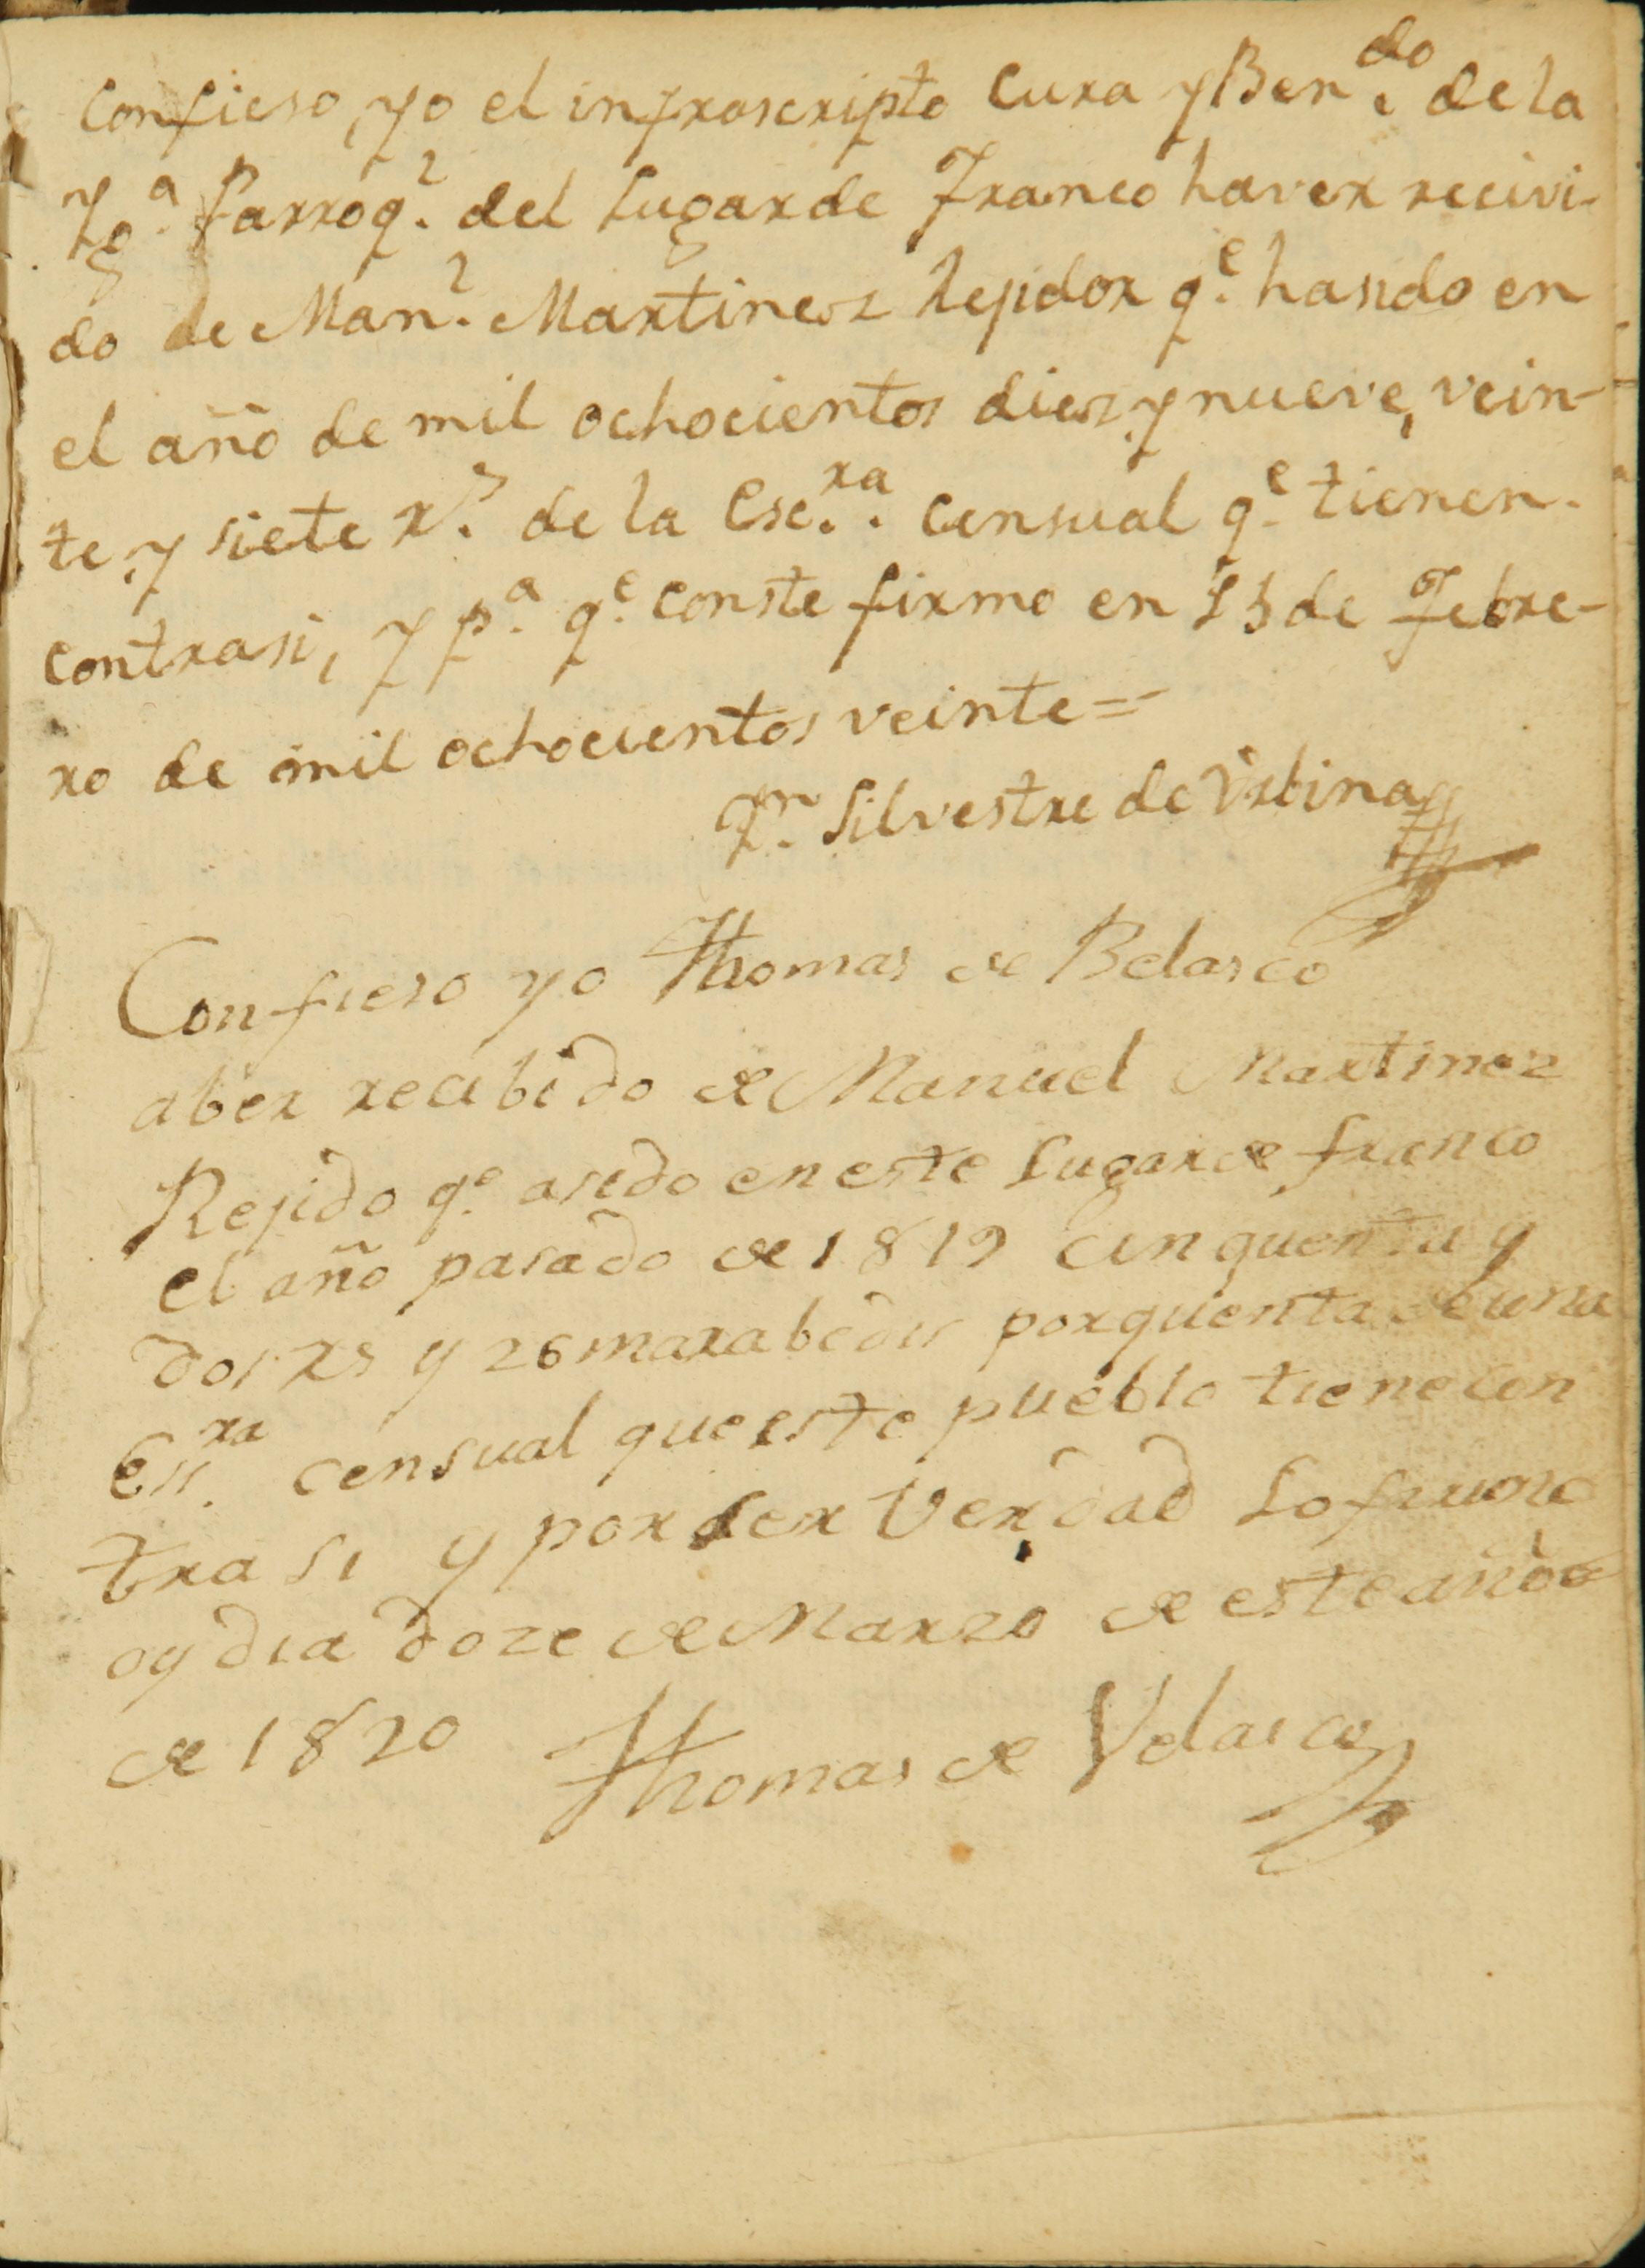 Confieso, yo el infrascripto Cura y Ben.do de la
Yg.a Parroq.l del Lugar de Franco haver recivi-
do de Man.l Martinez Rejidor q.e ha sido en
el año de mil ochocientos diez y nueve, vein-
te y siete r.s de la Esc.ra censual q.e tienen
contra si, y p.a q.e conste firmo en 15 de Febre-
ro de mil ochocientos veinte=
Silvestre de Vrbina
Confieso yo Thomas de Belasco
aber recibido de Manuel Martinez
Rejido q.e asido en este Lugar de franco
el año pasado de 1819 cinquenta y
dos rs y 26 marabedis por quenta de una
Ess.ra censual que este pueblo tiene con
tra si y por ser Verdad Lo firmo
oy dia doze de Marzo de este año
de 1820 Thomas de Velasco